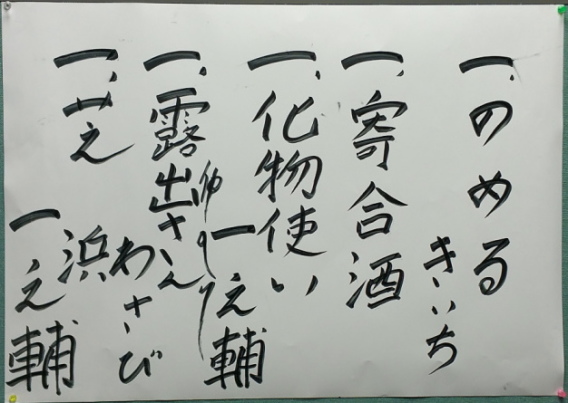 一、のめる
きいち
一、寄合酒
一、化物使い
一之輔
仲入り
一、露出さん
わさび
一、芝浜
一之輔